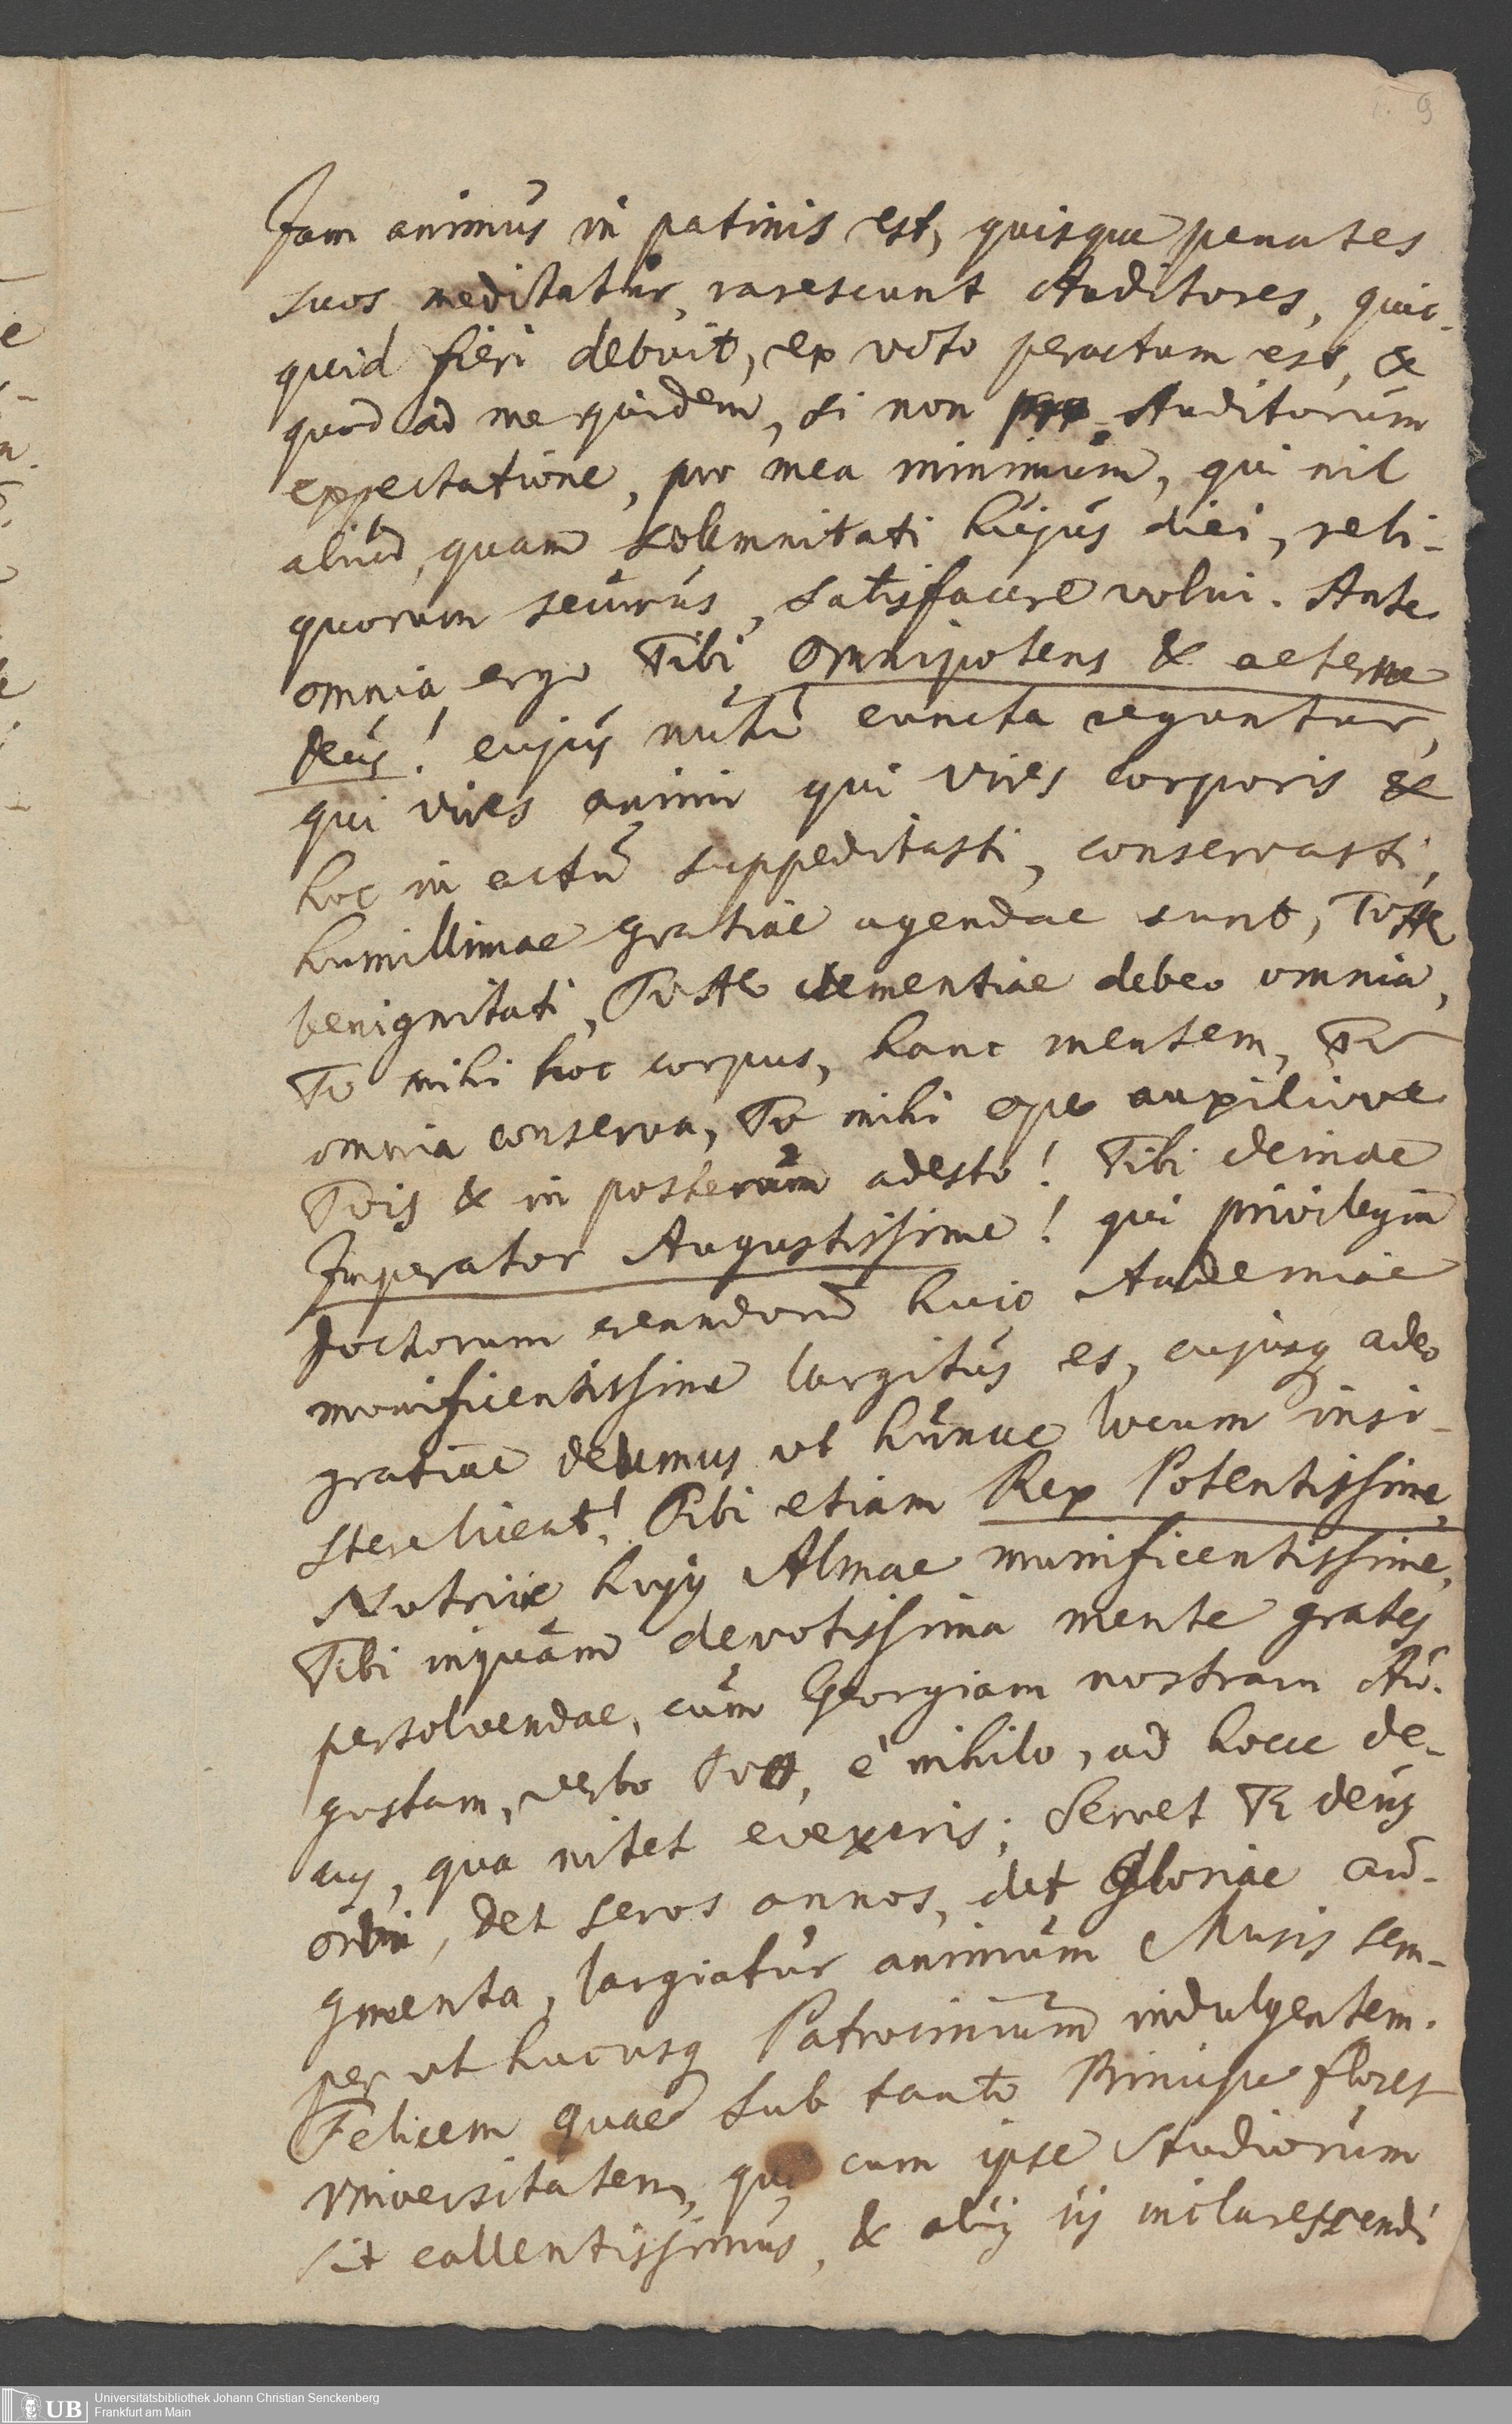 9
Jam animus in patinis est, quisque penates
suos meditatur, rarescunt Auditores, quic-
quid fieri debuit, ex voto peractum est, &
quod ad me quidem, si non pro Auditorum
expectatione, pro mea minimum, qui nil
aliud, quam solemnitati hujus diei, reli-
quorum securus, satisfacere volui. Ante
omnia ergo Tibi, omnipotens & aeterne
Deus! cujus nutu cuncta reguntur,
qui vires animi qui vires corporis &
hoc in actu suppeditasti, conservasti,
humillimae gratiae agendae sunt, Tuae
benignitati, Tuae clementiae debeo omnia,
Tu mihi hoc corpus, hanc mentem, Tu
omnia conserva, Tu mihi ope auxiliove
Tuis & in posterum adesto! Tibi deinde
Imperator Augustissime! qui privilegiu
Doctorum creandoru huic Academiae
munificentissime largitus es, cujusq adeo
gratiae debemus ut hunce locum insi-
stere liceat! Tibi etiam Rex Potentissime,
Nutricie hujus Almae munificentissime,
Tibi inquam devotissima mente grates
persolvendae, cum Georgiam nostram Au-
gustam, verbo Tuo, e nihilo, ad hocce de-
cus, qua nitet evexeris; Servet Te deus
orbi, det seros annos, det Gloriae au-
gmenta, largiatur animum Musis sem-
per ut hucusq Patrocinium indulgentem.
Felicem quae sub tanto Principe floret
Universitatem, qui cum ipse Studiorum
sit callentissimus, & aliis iis inclarescendi
Universitätsbibliothek Johann Christian Senckenberg
Frankfurt am Main
UB